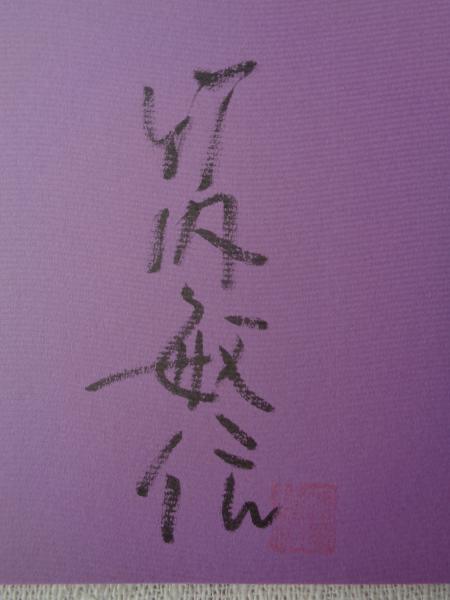 竹内敏信